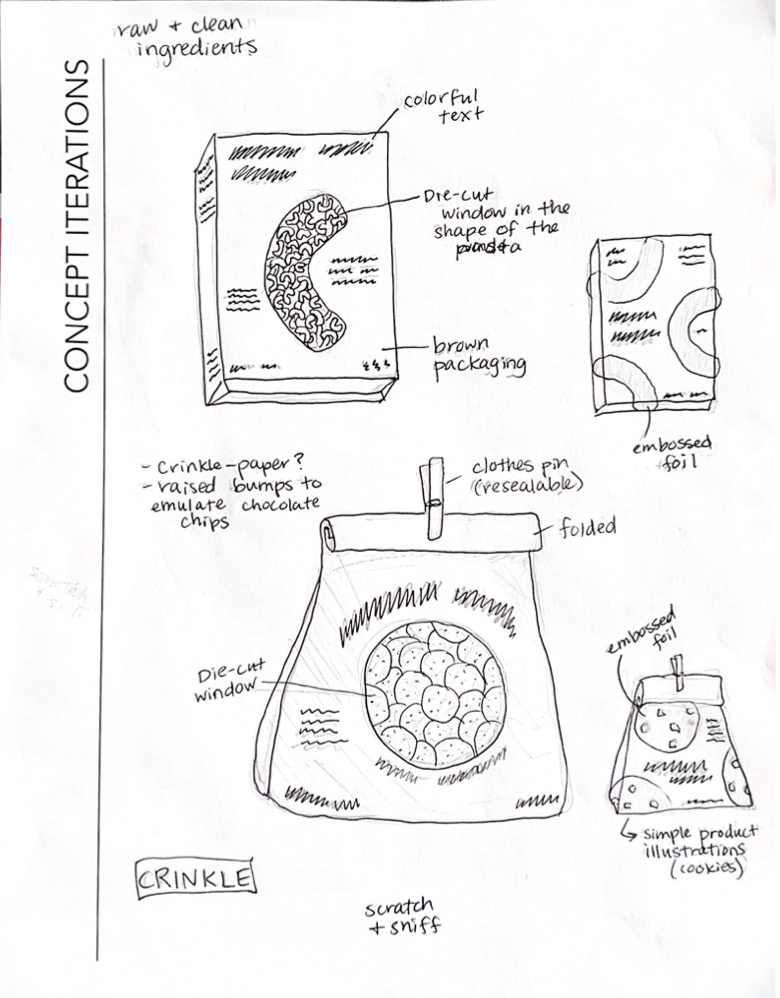 CONCEPT ITERATIONS
raw + clean
ingredients
colorful
text
Die-cut
window in the
shape of the
brown
packaging
embossed
foil
- Crinkle-paper?
- raised bumps to
emulate chocolate
chips
clothes pin
(resealable)
folded
scratch
+ sniff
Die-cut
window
embossed
foil
simple product
illustrations
(cookies)
CRINKLE
scratch
+ sniff